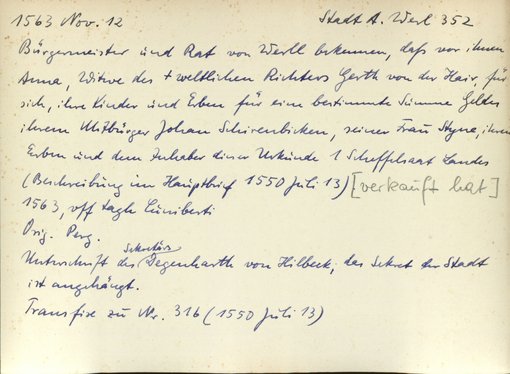 1563 Nov. 12 Stadt A. Werl 352
Bürgermeister und Rat von Werll bekennen, daß vor ihnen
Anna, Witwe des + weltlichen Richters Gerth von der Hair, für
sich, ihre Kinder und Erben für eine bestimmte Summe Geldes
ihrem Mitbürger Johan Schirenbicken, seiner Frau Styne, ihren
Erben und dem Inhaber dieser Urkunde 1 Scheffelsaat Landes
(Beschreibung im Hauptbrief 1550 Juli 13) [verkauft hat]
1563, vff tagh Cuniberti
Orig. Perg.
Unterschrift des Sekretärs Degenharth von Hilbeck, das Sekret der Stadt
ist angehängt.
Transfixe zu Nr. 316 (1550 Juli 13)